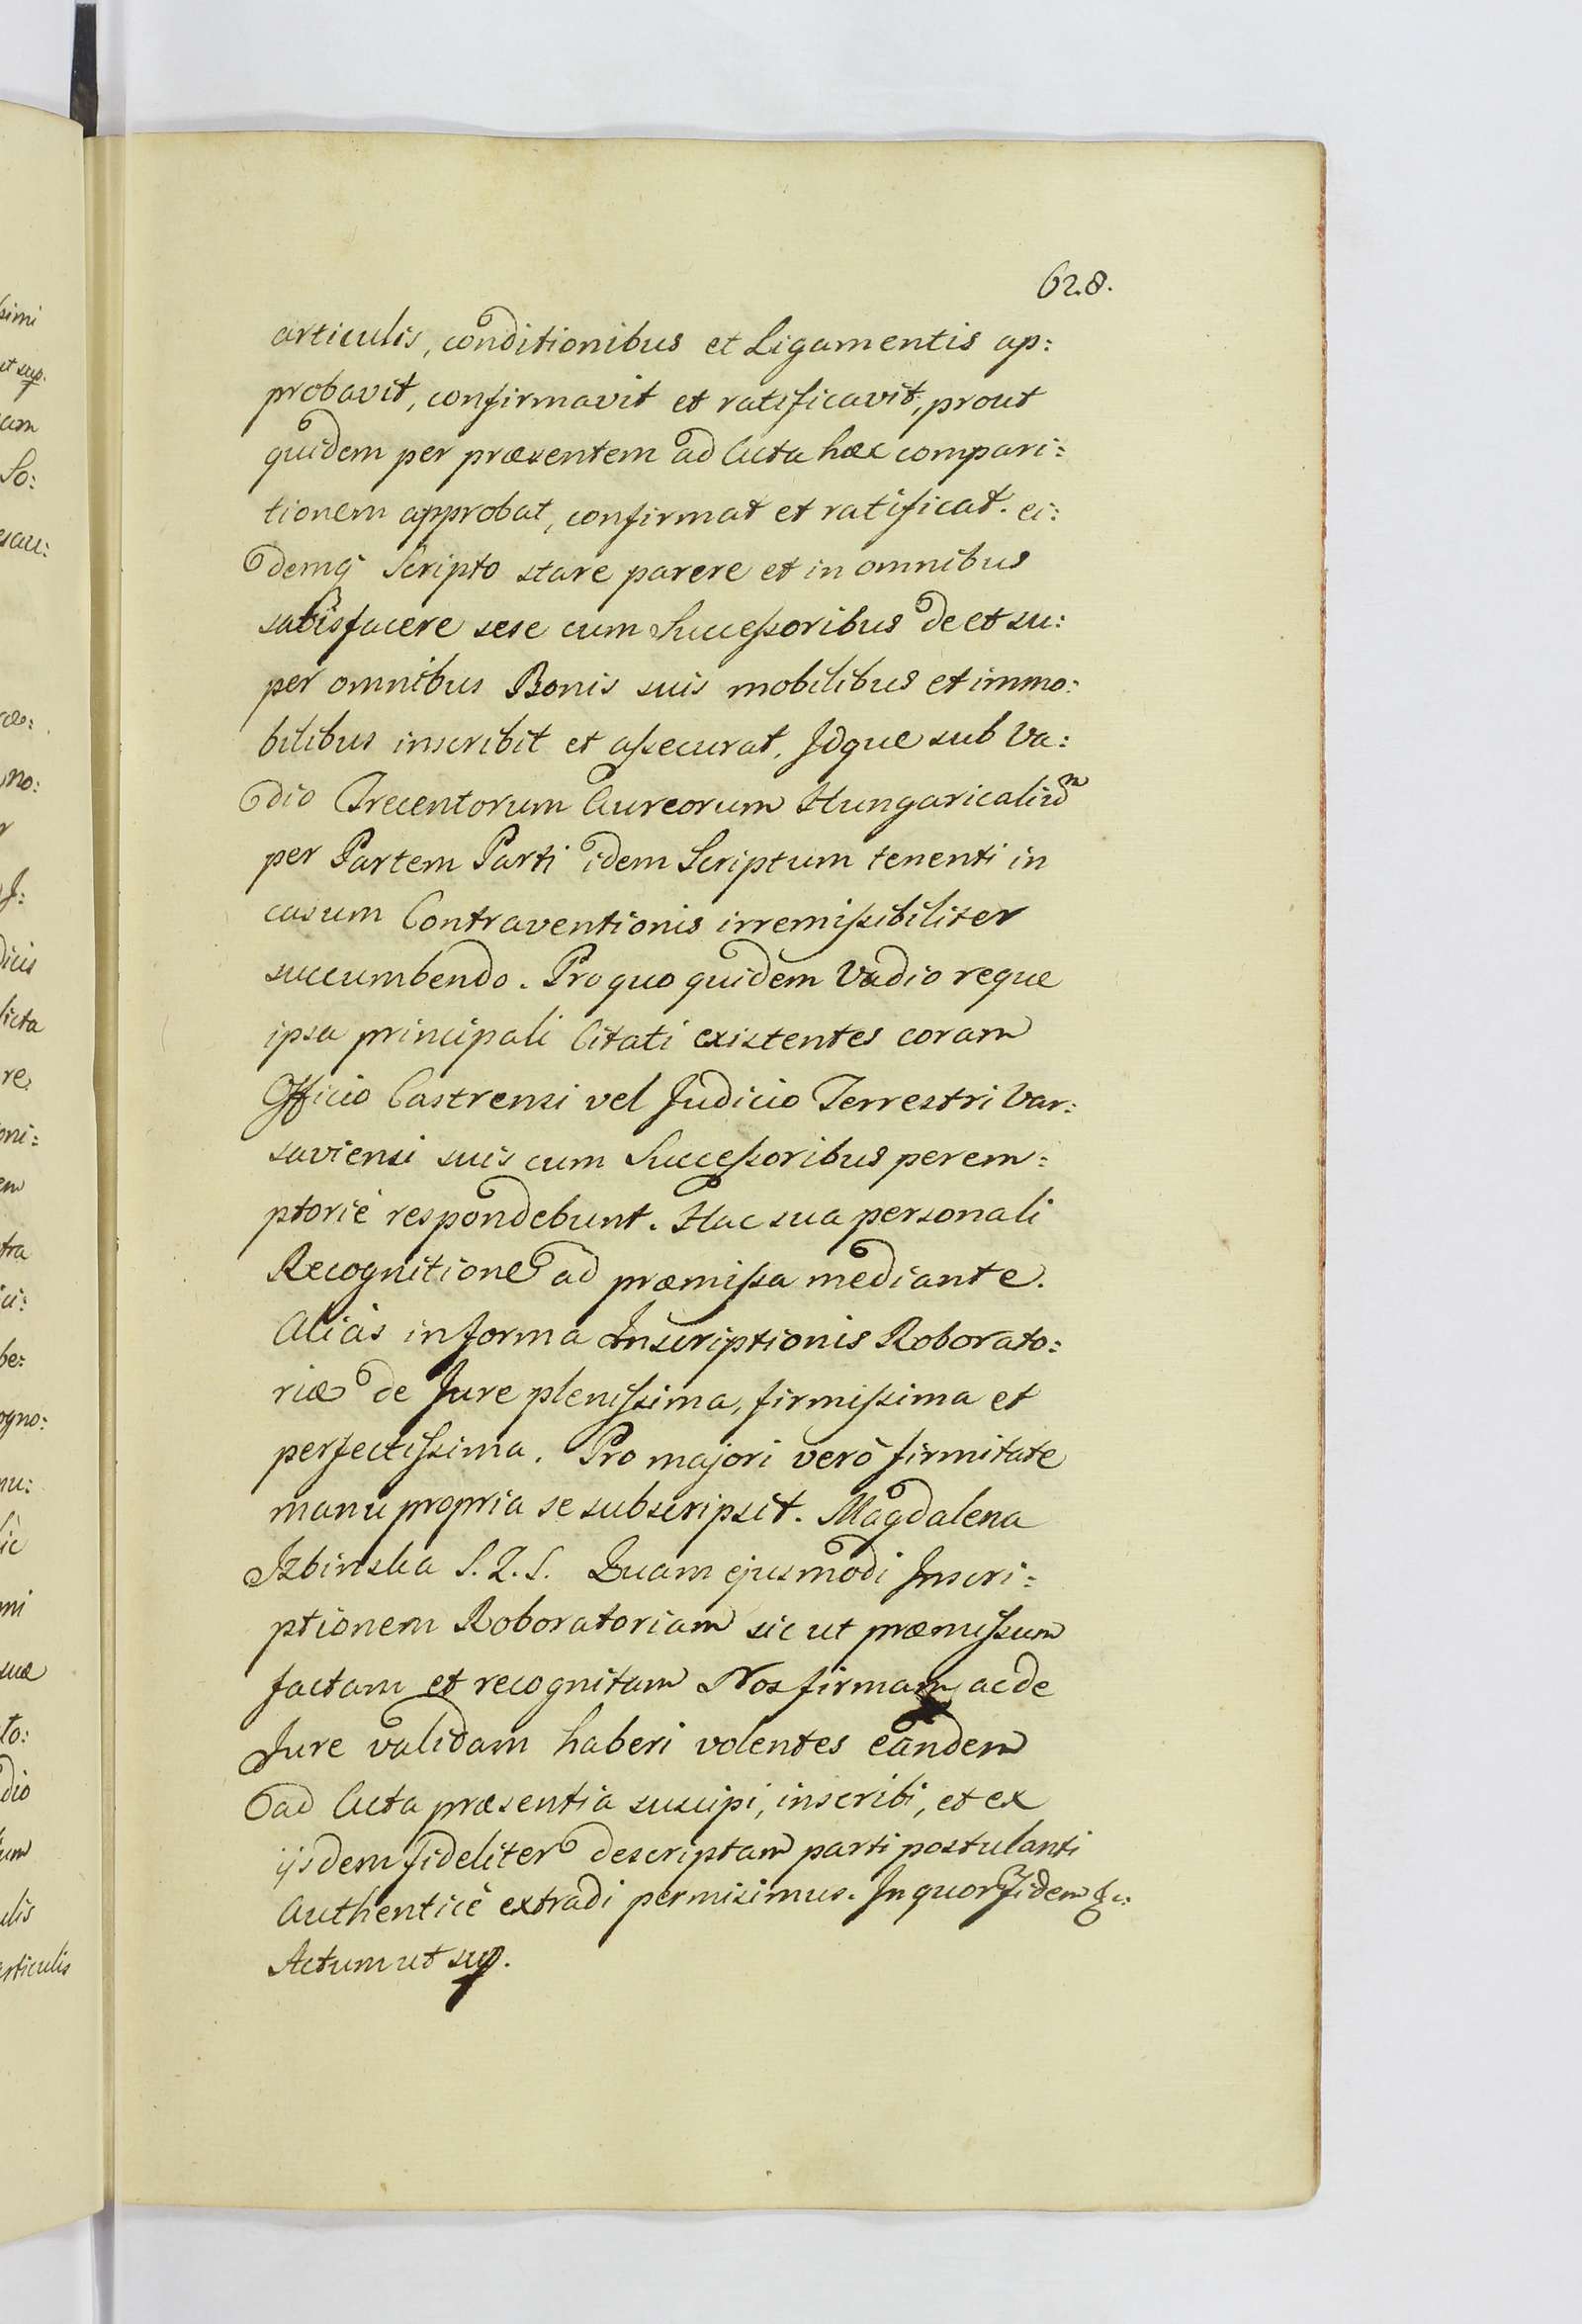 628.
articulis, conditionibus et Ligamentis ap:
probavit, confirmavit et ratificavit, prout
quidem per præsentem ad Acta hæc compari:
tionem approbat, confirmat et ratificat. ei:
demq́ Scripto stare parere et in omnibus
satisfacere sese cum Successoribus de et su:
per omnibus Bonis suis mobilibus et immo:
bilibus inscribit et assecurat. Idque sub Va:
dio Trecentorum Aureorum Hungaricaliũm
per Partem Parti idem Scriptum tenenti in
casum Contraventionis irremissibiliter
succumbendo. Pro quo quidem Vadio reque
ipsa principali Citati existentes coram
Officio Castrensi vel Judicio Terrestri Var:
saviensi suis cum Successoribus perem:
ptoriè respondebunt. Hac sua personali
Recognitione ad præmissa mediante.
Aliàs in forma Inscriptionis Roborato:
riæ de Jure plenissima, firmissima et
perfectissima. Pro majori verò firmitate
manu propria se subscripsit. Magdalena
Izbinska S. Z. S. Quam ejusmodi Inscri:
ptionem Roboratoriam sic ut præmissum
factam et recognitam Nos firmam ac de
Jure validam haberi volentes eandem
ad Acta præsentia suscipi, inscribi, et ex
ijsdem fideliter descriptam parti postulanti
Authenticè extradi permisimus. In quor. Fidem &c:
Actum ut sup.